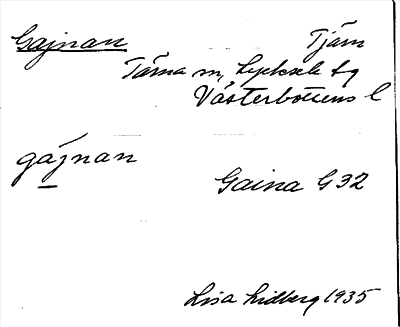 Gajnan Tjärn
Tärna sn, Lycksele tg
Västerbottens l
gájnan
Gaina G 32
Lisa Lidberg 1935